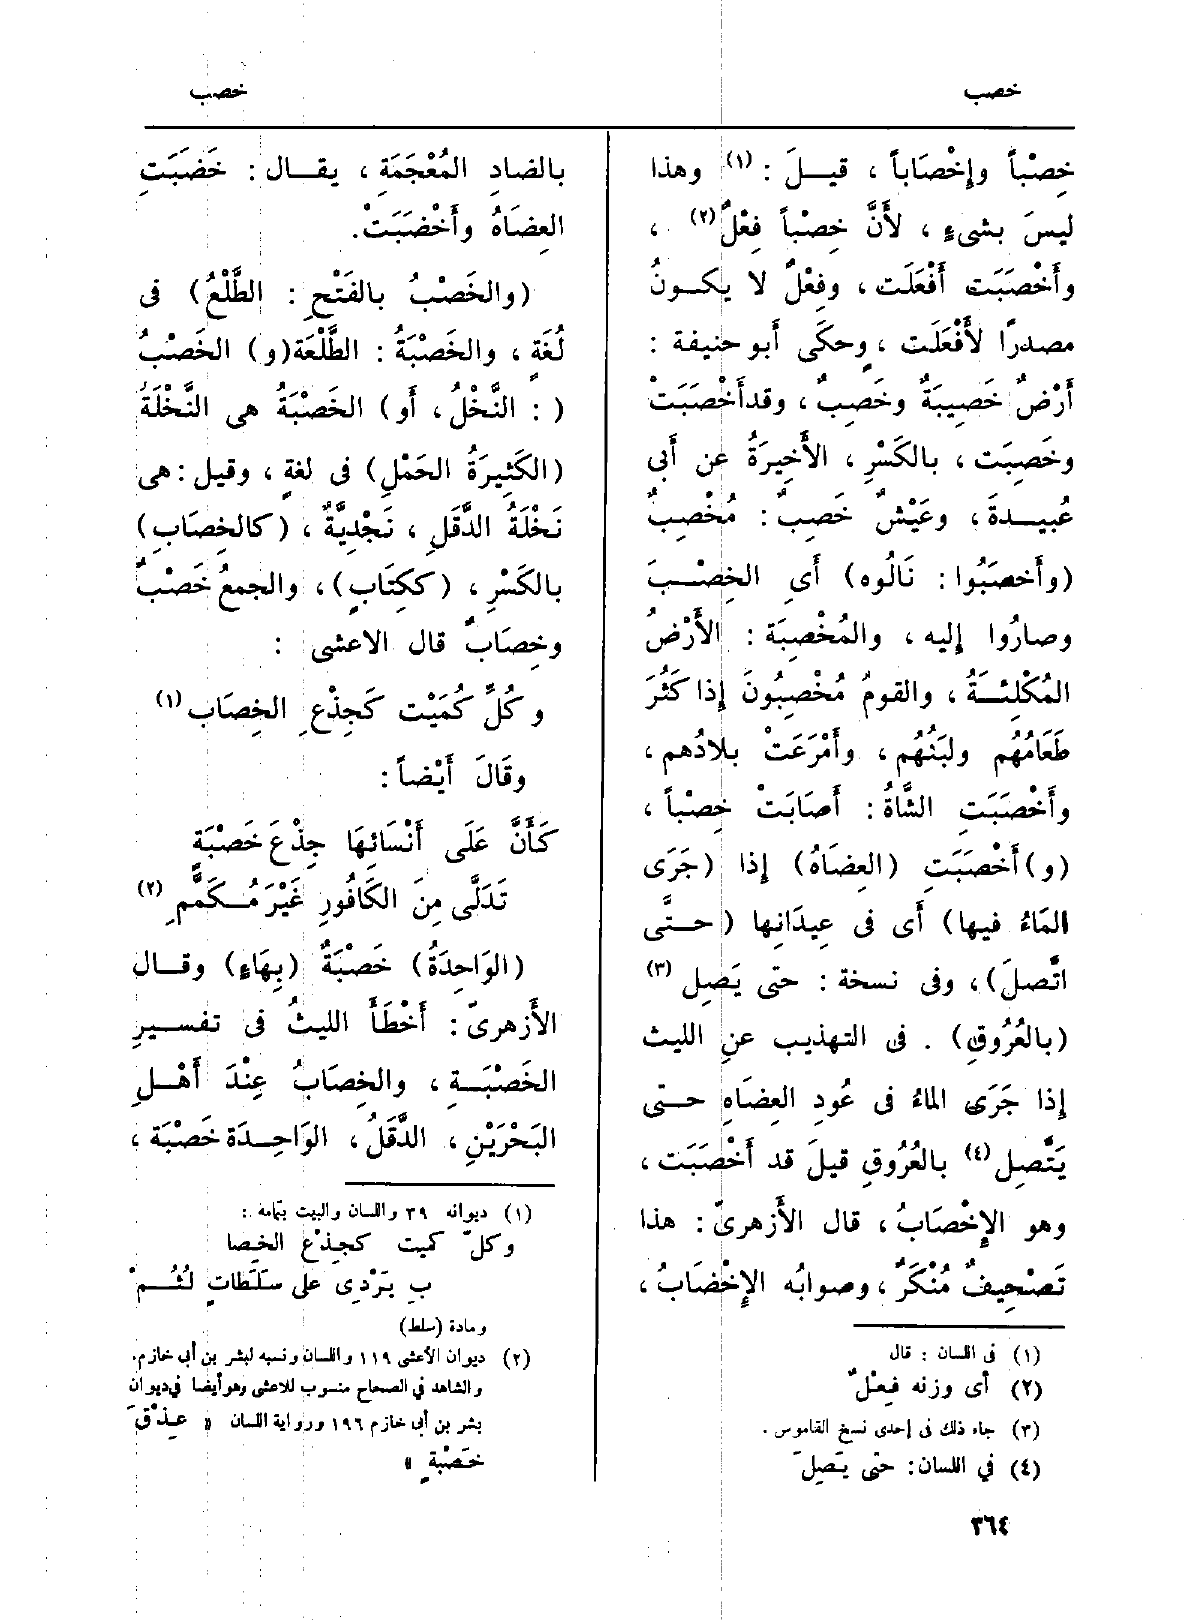 خصب
خصب
خِصْباً وإِخْصَاباً ، قيـلَ : (١) وهذا
ليسَ بشىءٍ ، لأَنَّ خِصْباً فِعْلٌ (٢) ،
وأَخْصَبَت أَفْعَلَت ، وفِعْلٌ لا يكـونُ
مصدرًا لأَفْعَلَت ، وحكَى أَبو حنيفة :
أَرْضٌ خَصِيبَةٌ وخَصِبٌ ، وقد أَخْصَبَتْ
وخَصِبَت ، بالكَسْرِ ، الأَخِيرَةُ عن أَبى
عُبيـدةَ ، وعَيْشٌ خَصِبٌ : مُخْصِبٌ
(وأَخصَبُوا : نَالُوه) أَىِ الخِصْـبَ
وصارُوا إليه ، والمُخْصِبَة : الأَرْضُ
المُكْلِئـةُ ، والقومُ مُخْصِبُونَ إِذا كَثُرَ
طَعَامُهُم ولبَنُهُم ، وأَمْرَعَتْ بلادُهم ،
وأَخْصَبَتِ الشَّاةُ : أَصَابَتْ خِصْباً ،
(و) أَخْصَبَتِ (العِضَاهُ) إِذا (جَرَى
المَاءُ فيها) أَى فى عِيدَانِها (حـتَّى
اتَّصلَ) ، وفى نسخة : حتى يَصِل (٣)
(بالعُرُوقِ) . فى التهذيب عنِ الليث
إِذا جَرَى الماءُ فى عُودِ العِضَاهِ حـتى
يَتَّصِل (٤) بالعُرُوقِ قيلَ قد أَخْصَبَت ،
وهو الإِخْصَابُ ، قال الأَزهرىّ : هذا
تَصْحِيفٌ مُنْكَرٌ ، وصوابُه الإِخْضَابُ ،
(١) فى اللسان : قال
(٢) أى وزنه فِعْلٌ
(٣) جاء ذلك فى إحدى نسخ القاموس .
(٤) في اللسان : حتى يَصِلَ
بالضادِ المُعْجَمَةِ ، يقـال : خَضَبَتِ
العِضَاهُ وأَخْضَبَتْ.
(والخَصْبُ بالفَتْحِ : الطَّلْعُ) فى
لُغَةٍ ، والخَصْبَةُ : الطَّلْعَة (و) الخَصْبُ
( : النَّخْلُ ، أَو) الخَصْبَةُ هى النَّخْلَةُ
(الكَثِيرَةُ الحَمْلِ) فى لغةٍ ، وقيل : هى
نَخْلَةُ الدَّقَلِ ، نَجْدِيَّةٌ ، (كالخِصَابِ)
بالكَسْرِ ، (ككِتَابٍ) ، والجمعُ خَصْبٌ
وخِصَابٌ قال الاعشى :
وكُلِّ كُمَيْت كَجِذْعِ الخِصَاب (١)
وقَالَ أَيْضاً :
كَأَنَّ عَلَى أَنْسَائِهَا جِذْعَ خَصْبَةٍ
تَدَلَّى مِنَ الكَافُورِ غَيْرَ مُـكَمَّمِ (٢)
(الوَاحِدَةُ) خَصْبَةٌ (بِهَاءٍ) وقـال
الأَزهرىّ : أَخْطَأَ الليثُ فى تفسيرِ
الخَصْبَـةِ ، والخِصَابُ عِنْدَ أَهْـلِ
البَحْرَيْنِ ، الدَّقَلُ ، الوَاحِـدَة خَصْبَة ،
(١) ديوانه ٣٩ واللسان والبيت بتمامه :
وكلّ كميت كجِذْع الخِصا
بِ يَرْدِى على سَلَطات لُثُمْ
ومادة (سلط)
(٢) ديوان الأعشى ١١٩ واللسان ونسبه لبشر بن أبى خازم.
والشاهد في الصحاح منسوب للاعشى وهو أيضا في ديوان
بشر بن أبى خازم ١٩٦ ورواية اللسان « عِذْقَ
خَصْبةٍ »
٣٦٤